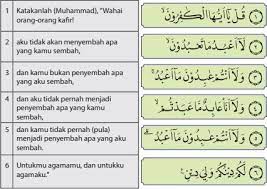 1 Katakanlah (Muhammad), "Wahai
orang-orang kafir!
قُلْ يٰٓاَيُّهَا الْكٰفِرُوْنَۙ ١
2 aku tidak akan menyembah apa
yang kamu sembah,
لَآ اَعْبُدُ مَا تَعْبُدُوْنَۙ ٢
3 dan kamu bukan penyembah apa
yang aku sembah,
وَلَآ اَنْتُمْ عٰبِدُوْنَ مَآ اَعْبُدُۚ ٣
4 dan aku tidak pernah menjadi
penyembah apa yang kamu
sembah,
وَلَآ اَنَا۠ عَابِدٌ مَّا عَبَدْتُّمْۙ ٤
5 dan kamu tidak pernah (pula)
menjadi penyembah apa yang aku
sembah.
وَلَآ اَنْتُمْ عٰبِدُوْنَ مَآ اَعْبُدُۗ ٥
6 Untukmu agamamu, dan untukku
agamaku."
لَكُمْ دِيْنُكُمْ وَلِيَ دِيْنِ ٦